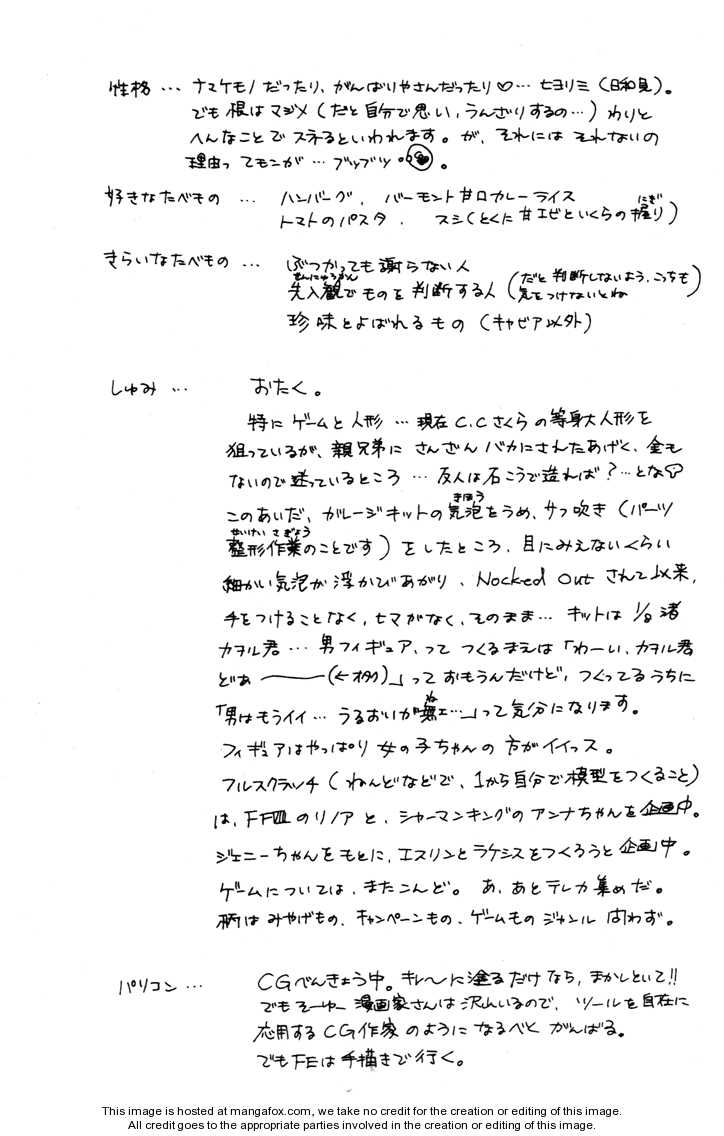 性格 … ナマケモノだったり、がんばりやさんだったり♡… 七ヨリミ(日和見)。
でも根はマジメ(だと自分で思い、うんざりするの…)わりと
へんなことでスネるといわれます。が、それにはそれないの
理由ってモンが… ブツブツ。
好きなたべもの … ハンバーグ、バーモント甘口カレーライス
トマトのパスタ、スシ(とくに甘エビといくらの握り)
にぎ
きらいなたべもの … ぶつかっても謝らない人
せんにゅうかん
先入観でものを判断する人(だと判断しないよう、こっちも
気をつけないとね)
珍味とよばれるもの(キャビア以外)
しゅみ … おたく。
特にゲームと人形 … 現在C.Cさくらの等身大人形を
狙っているが、親兄弟にさんざんバカにされたあげく、金も
ないので迷っているところ … 友人は石こうで造れば?…とな
きほう
このあいだ、ガレージキットの気泡をうめ、サフ吹き(パーツ
せいけい さぎょう
整形作業のことです)をしたところ、目にみえないくらい
細かい気泡が浮かびあがり、Nocked Outされて以来、
手をつけることなく、ヒマがなく、そのまま… キットは1/8渚
カヲル君 … 男フィギュアって つくるまえは「わーい、カヲル君
どぁ――(←オタク)」っておもうんだけど、つくってるうちに
ね
「男はもうイイ… うるおいが無ェ…」って気分になります。
フィギュアはやっぱり女の子ちゃんの方がイイっス。
フルスクラッチ(ねんどなどで、1から自分で模型をつくること)
は、FFⅧのリノアと、シャーマンキングのアンナちゃんを企画中。
ジェニーちゃんをもとに、エスリンとラケシスをつくろうと企画中。
ゲームについては、またこんど。あ、あとテレカ集めだ。
柄はみやげもの、キャンペーンもの、ゲームものジャンル問わず。
パソコン … CGべんきょう中。キレ〜に塗るだけなら、まかしといて!!
でもそーゆー漫画家さんは沢山いるので、ツールを自在に
応用するCG作家のようになるべくがんばる。
でもFEは手描きで行く。
This image is hosted at mangafox.com, we take no credit for the creation or editing of this image.
All credit goes to the appropriate parties involved in the creation or editing of this image.